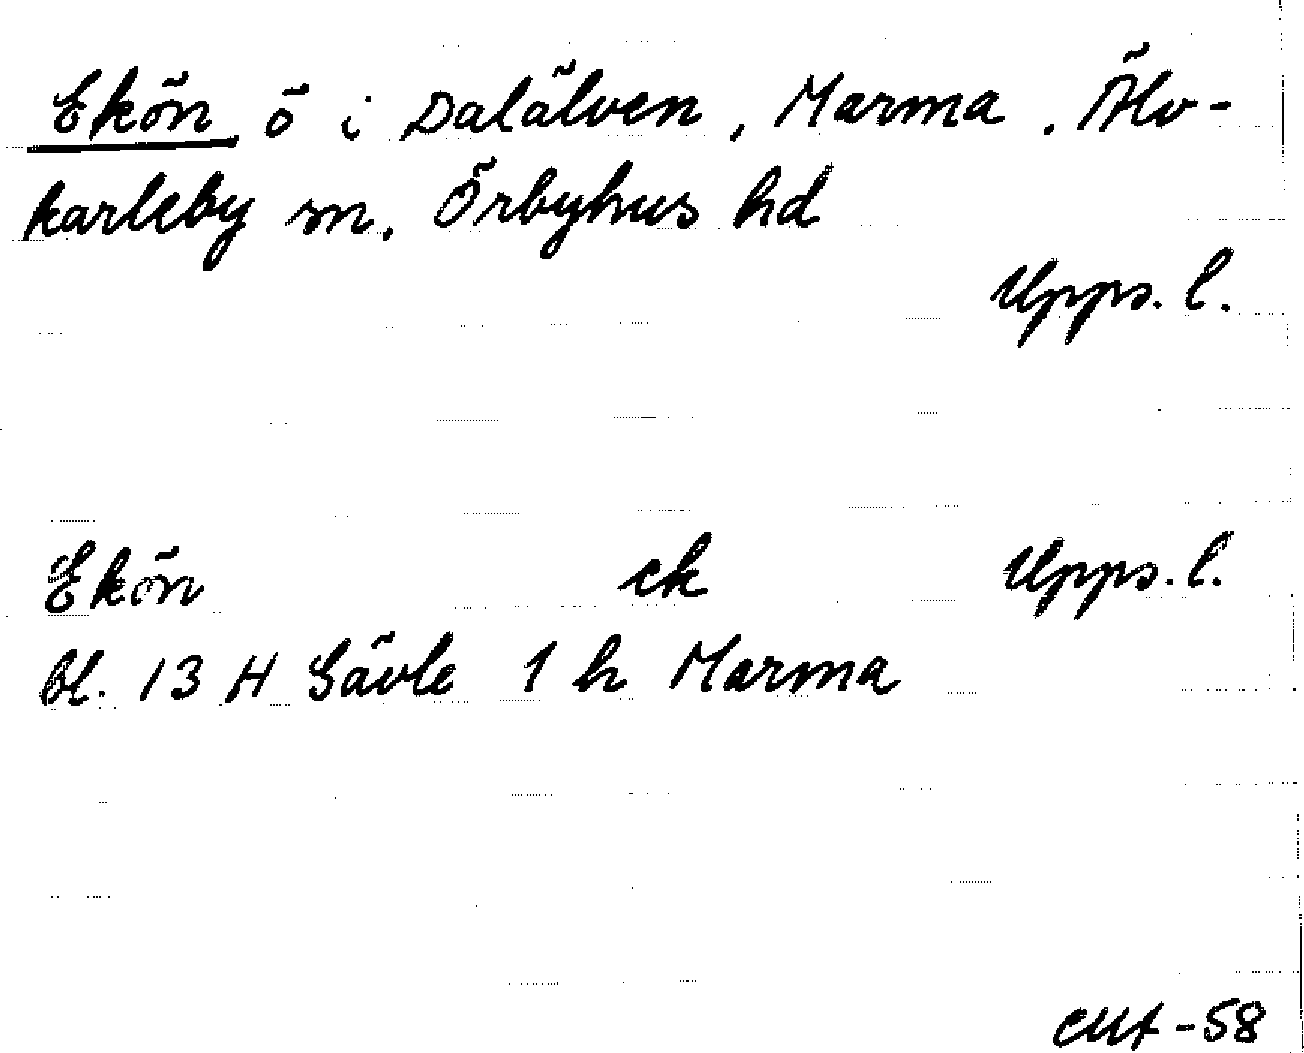 Ekön, ö i Dalälven, Marma. Älv-
karleby sn. Örbyhus hd
Upps. l.
Ekön ek Upps. l.
bl. 13 H Gävle 1 h Marma
-58